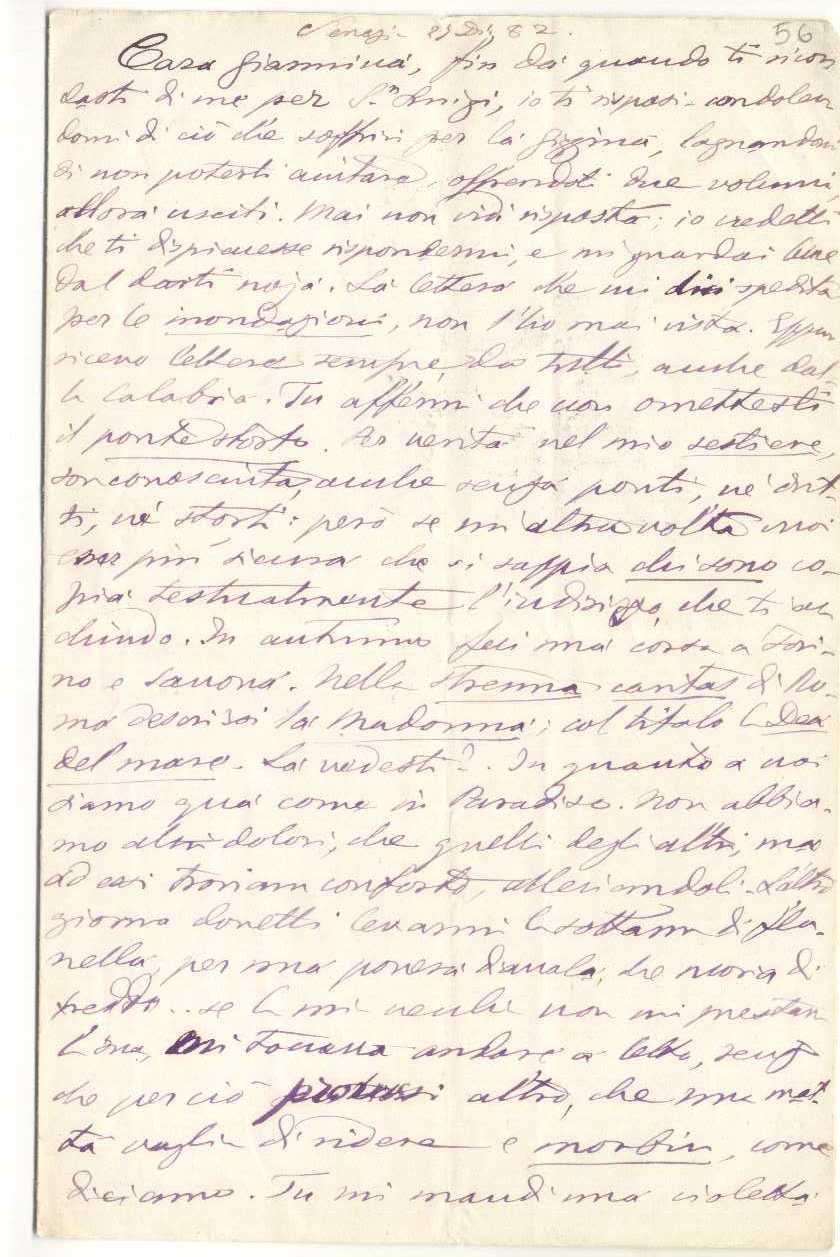 Venezia 21 Dic. 82.
56
Cara Giannina, fin da quando ti ricor
dasti di me per S.n Luigi, io ti risposi condolen
domi di ciò che soffrivi per la Giggina, lagnandomi
di non poterti aiutare, offrendoti due volumi,
allora usciti. Mai non vidi risposta; io credetti
che ti dispiacesse rispondermi, e mi guardai bene
dal darti noja. La lettera che mi dici spedita
per le inondazioni, non l'ho mai vista. Eppur
ricevo lettere sempre, da tutti, anche dal
la Calabria. Tu affermi che non omettesti
il ponte storto. Per verità nel mio sestiere,
son conosciuta, anche senza ponti, nè drit
ti, nè storti: però se un'altra volta vuoi
esser più sicura che si sappia chi sono co-
pia testualmente l'indirizzo, che ti ac
chiudo. In autunno feci una corsa a Tori-
no e Savona. Nella strenna caritas di Ro-
ma descrissi la Madonna; col titolo la Dea
del mare. La vedesti? In quanto a noi
siamo qua come in Paradiso. Non abbia-
mo altri dolori, che quelli degli altri, ma
ad essi troviam conforto, alleviandoli. L'altro
giorno dovetti levarmi la sottana di fla-
nella, per una povera diavola, che moria di
freddo.. se la mi vecchia non mi prestava
la sua, mi toccava andare a letto, senza
che perciò provassi altro, che una mat
ta voglia di ridere e morbin, come
diciamo. Tu mi mandi una violetta